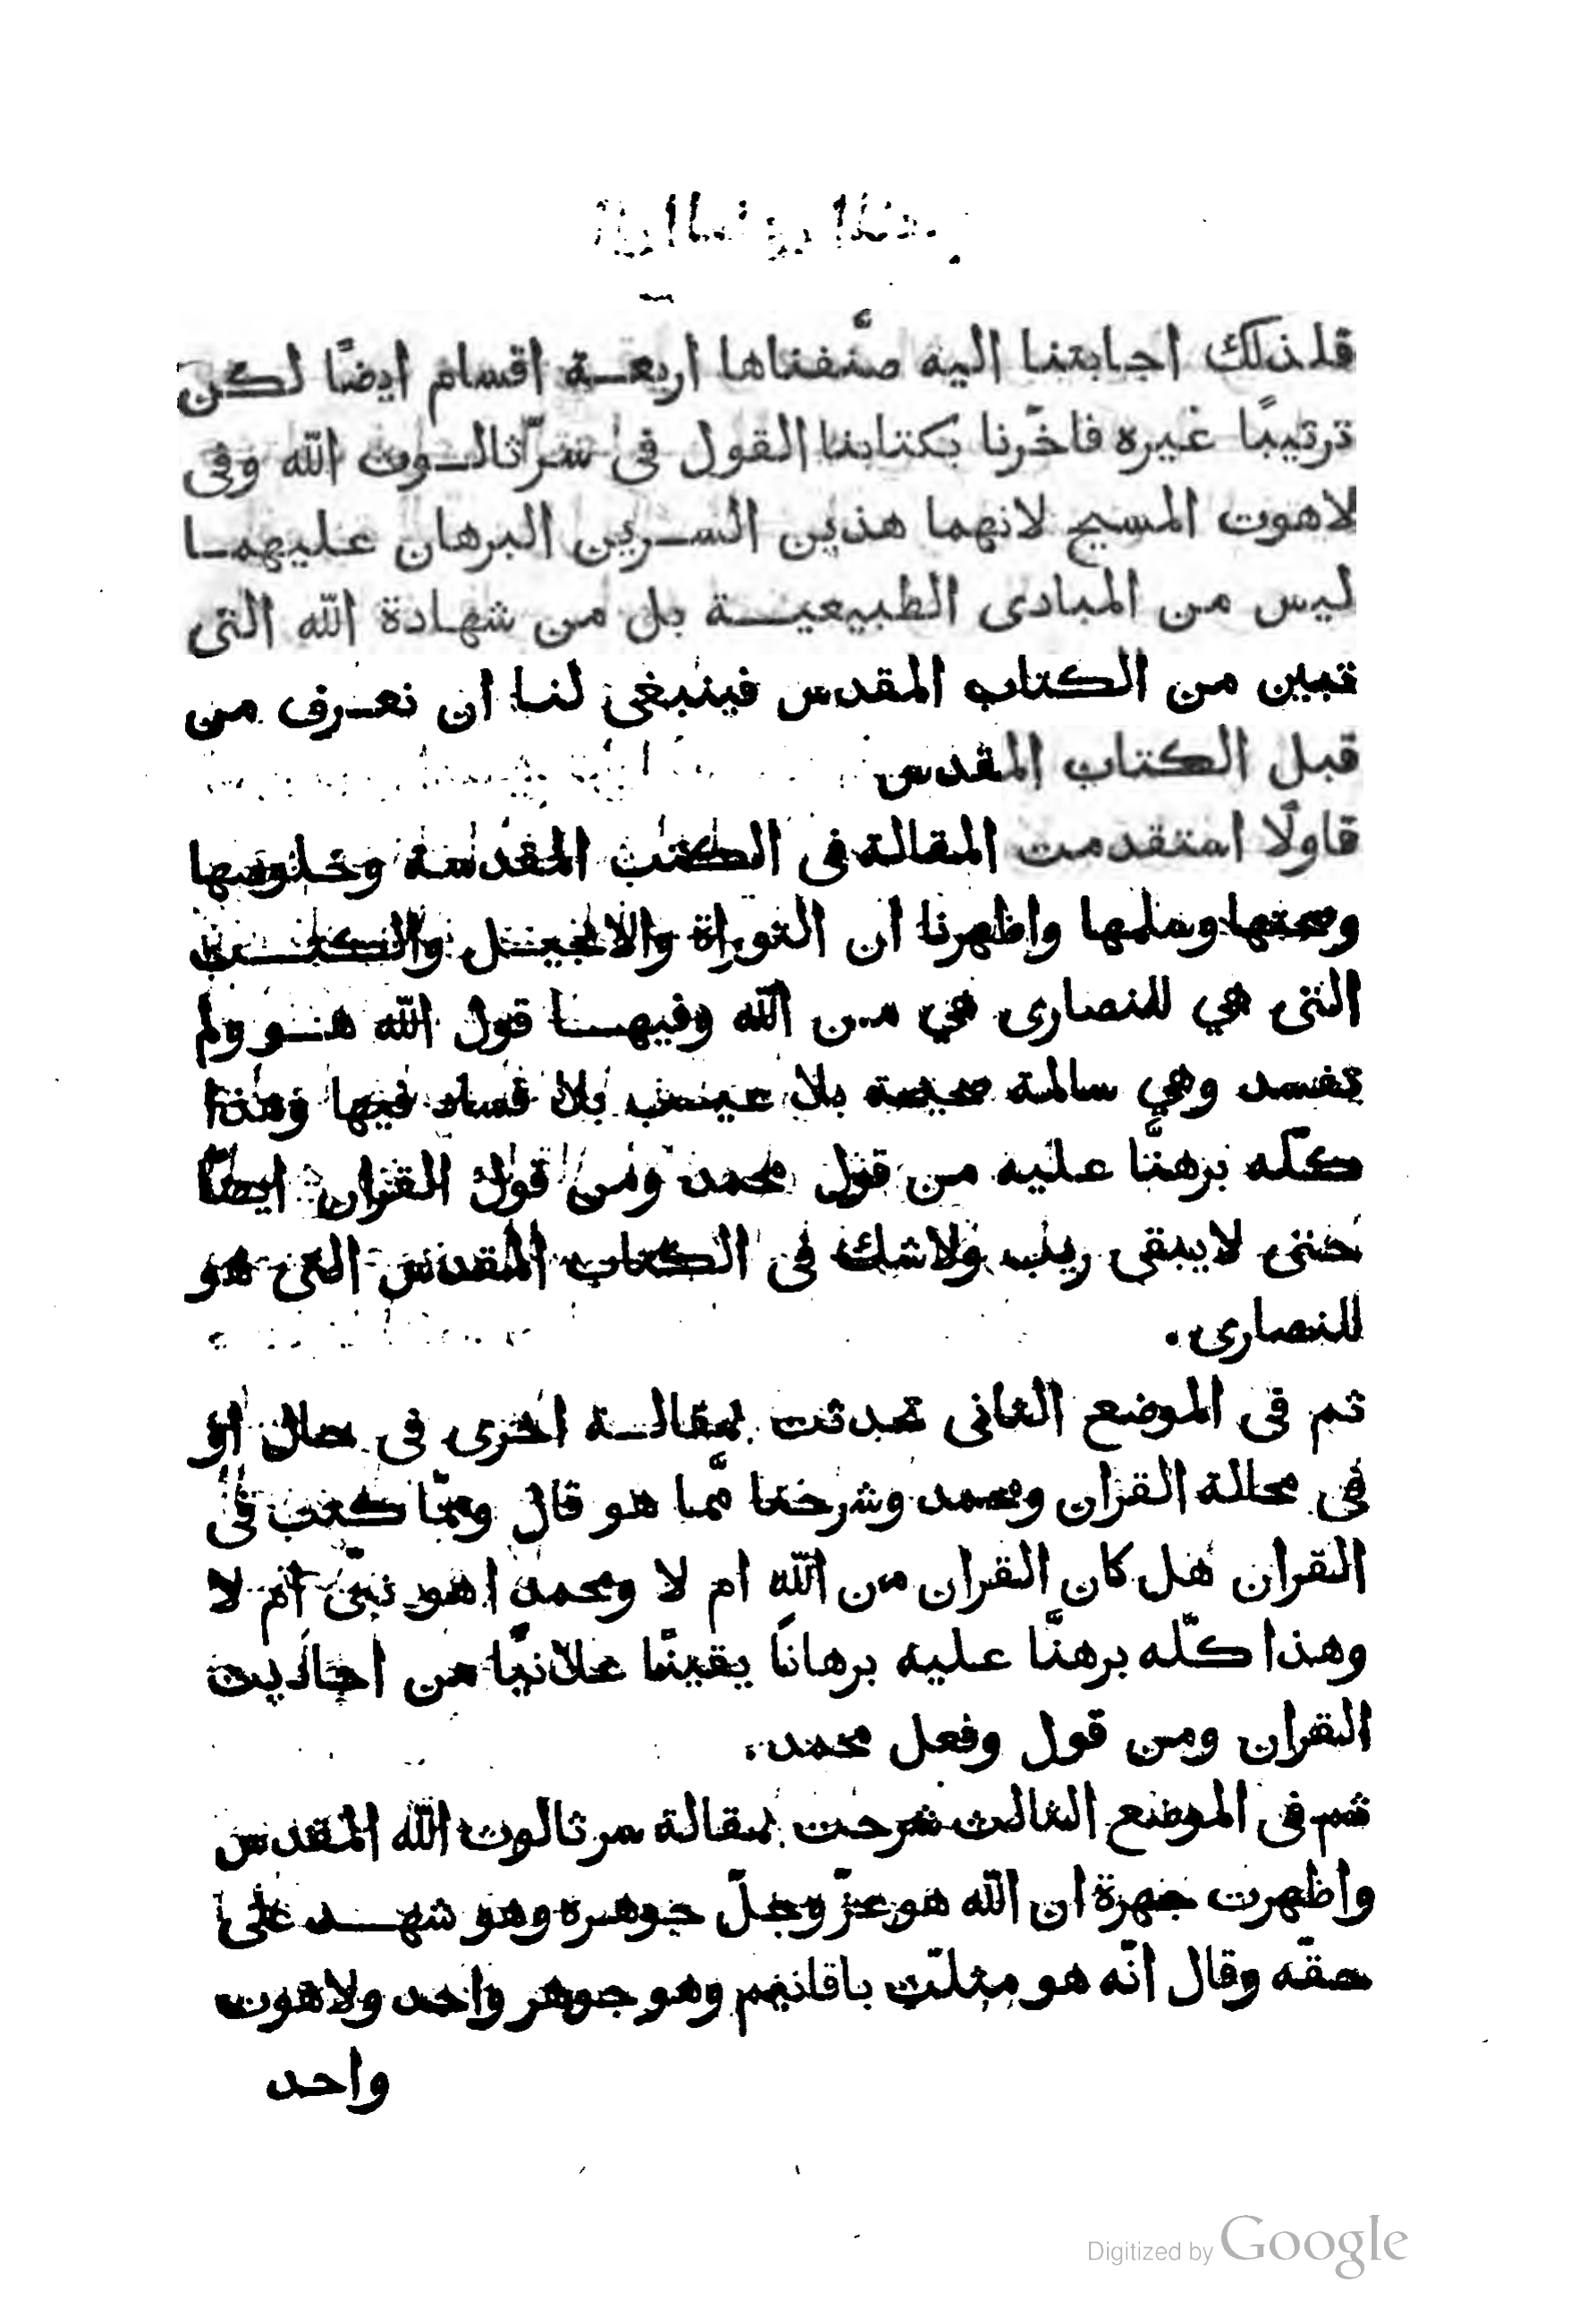 فلذلك اجابتنا اليه صنّفناها اربعة اقسام ايضًا لكن
ترتيبًا غيره فاخّرنا بكتابنا القول فى سرّ ثالوث الله وفى
لاهوت المسيح لانهما هذين السرين البرهان عليهما
ليس من المبادى الطبيعية بل من شهادة الله التى
تبين من الكتاب المقدس فينبغى لنا ان نعرف من
قبل الكتاب المقدس
فاولًا استقدمت المقالة فى الكتب المقدسة وخلوصها
وصحتها وسلمها واظهرنا ان التوراة والانجيل والكتب
التى هي للنصارى هي من الله وفيها قول الله هو ولم
تفسد وهي سالمة صحيحة بلا عيب بلا فساد فيها وهذا
كلّه برهنّا عليه من قول محمد ومن قول القران ايضًا
حتى لا يبقى ريب ولا شك فى الكتاب المقدس التى هو
للنصارى.
ثم فى الموضع الثانى تحدثت بمقالة اخرى فى حال او
فى محالة القران ومحمد وشرحنا ممّا هو قال وممّا كتب فى
القران هل كان القران من الله ام لا ومحمد اهو نبىّ ام لا
وهذا كلّه برهنّا عليه برهانًا يقينًا علانيًا من احاديث
القران ومن قول وفعل محمد.
ثم فى الموضع الثالث شرحت بمقالة سر ثالوث الله المقدس
واظهرت جهرة ان الله هو عزّ وجلّ جوهره وهو شهد على
حقّه وقال انّه هو مثلّث باقانيم وهو جوهر واحد ولاهوت
واحد
Digitized by Google